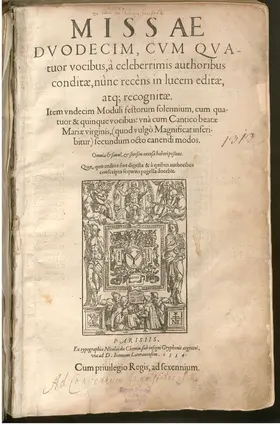 MISSAE
DVODECIM, CVM QVA-
tuor vocibus, à celeberrimis authoribus
conditæ, nunc recèns in lucem editæ,
atq; recognitæ.
Item vndecim Moduli festorum solennium, cum qua-
tuor & quinque vocibus: vnà cum Cantico beatæ
Mariæ virginis, (quod vulgò Magnificat inscri-
bitur) secundum octo canendi modos.
Omnia & simul, & seorsim
Quæ, quo ordine sint digesta & à quibus authoribus
conscripta sequens pagella docebit.
PARISIIS.
Ex typographia Nicolai du Chemin sub insigni Gryphonis argentei,
via ad D. Ioannem Lateranensem. 1554
Cum priuilegio Regis, ad sexennium.